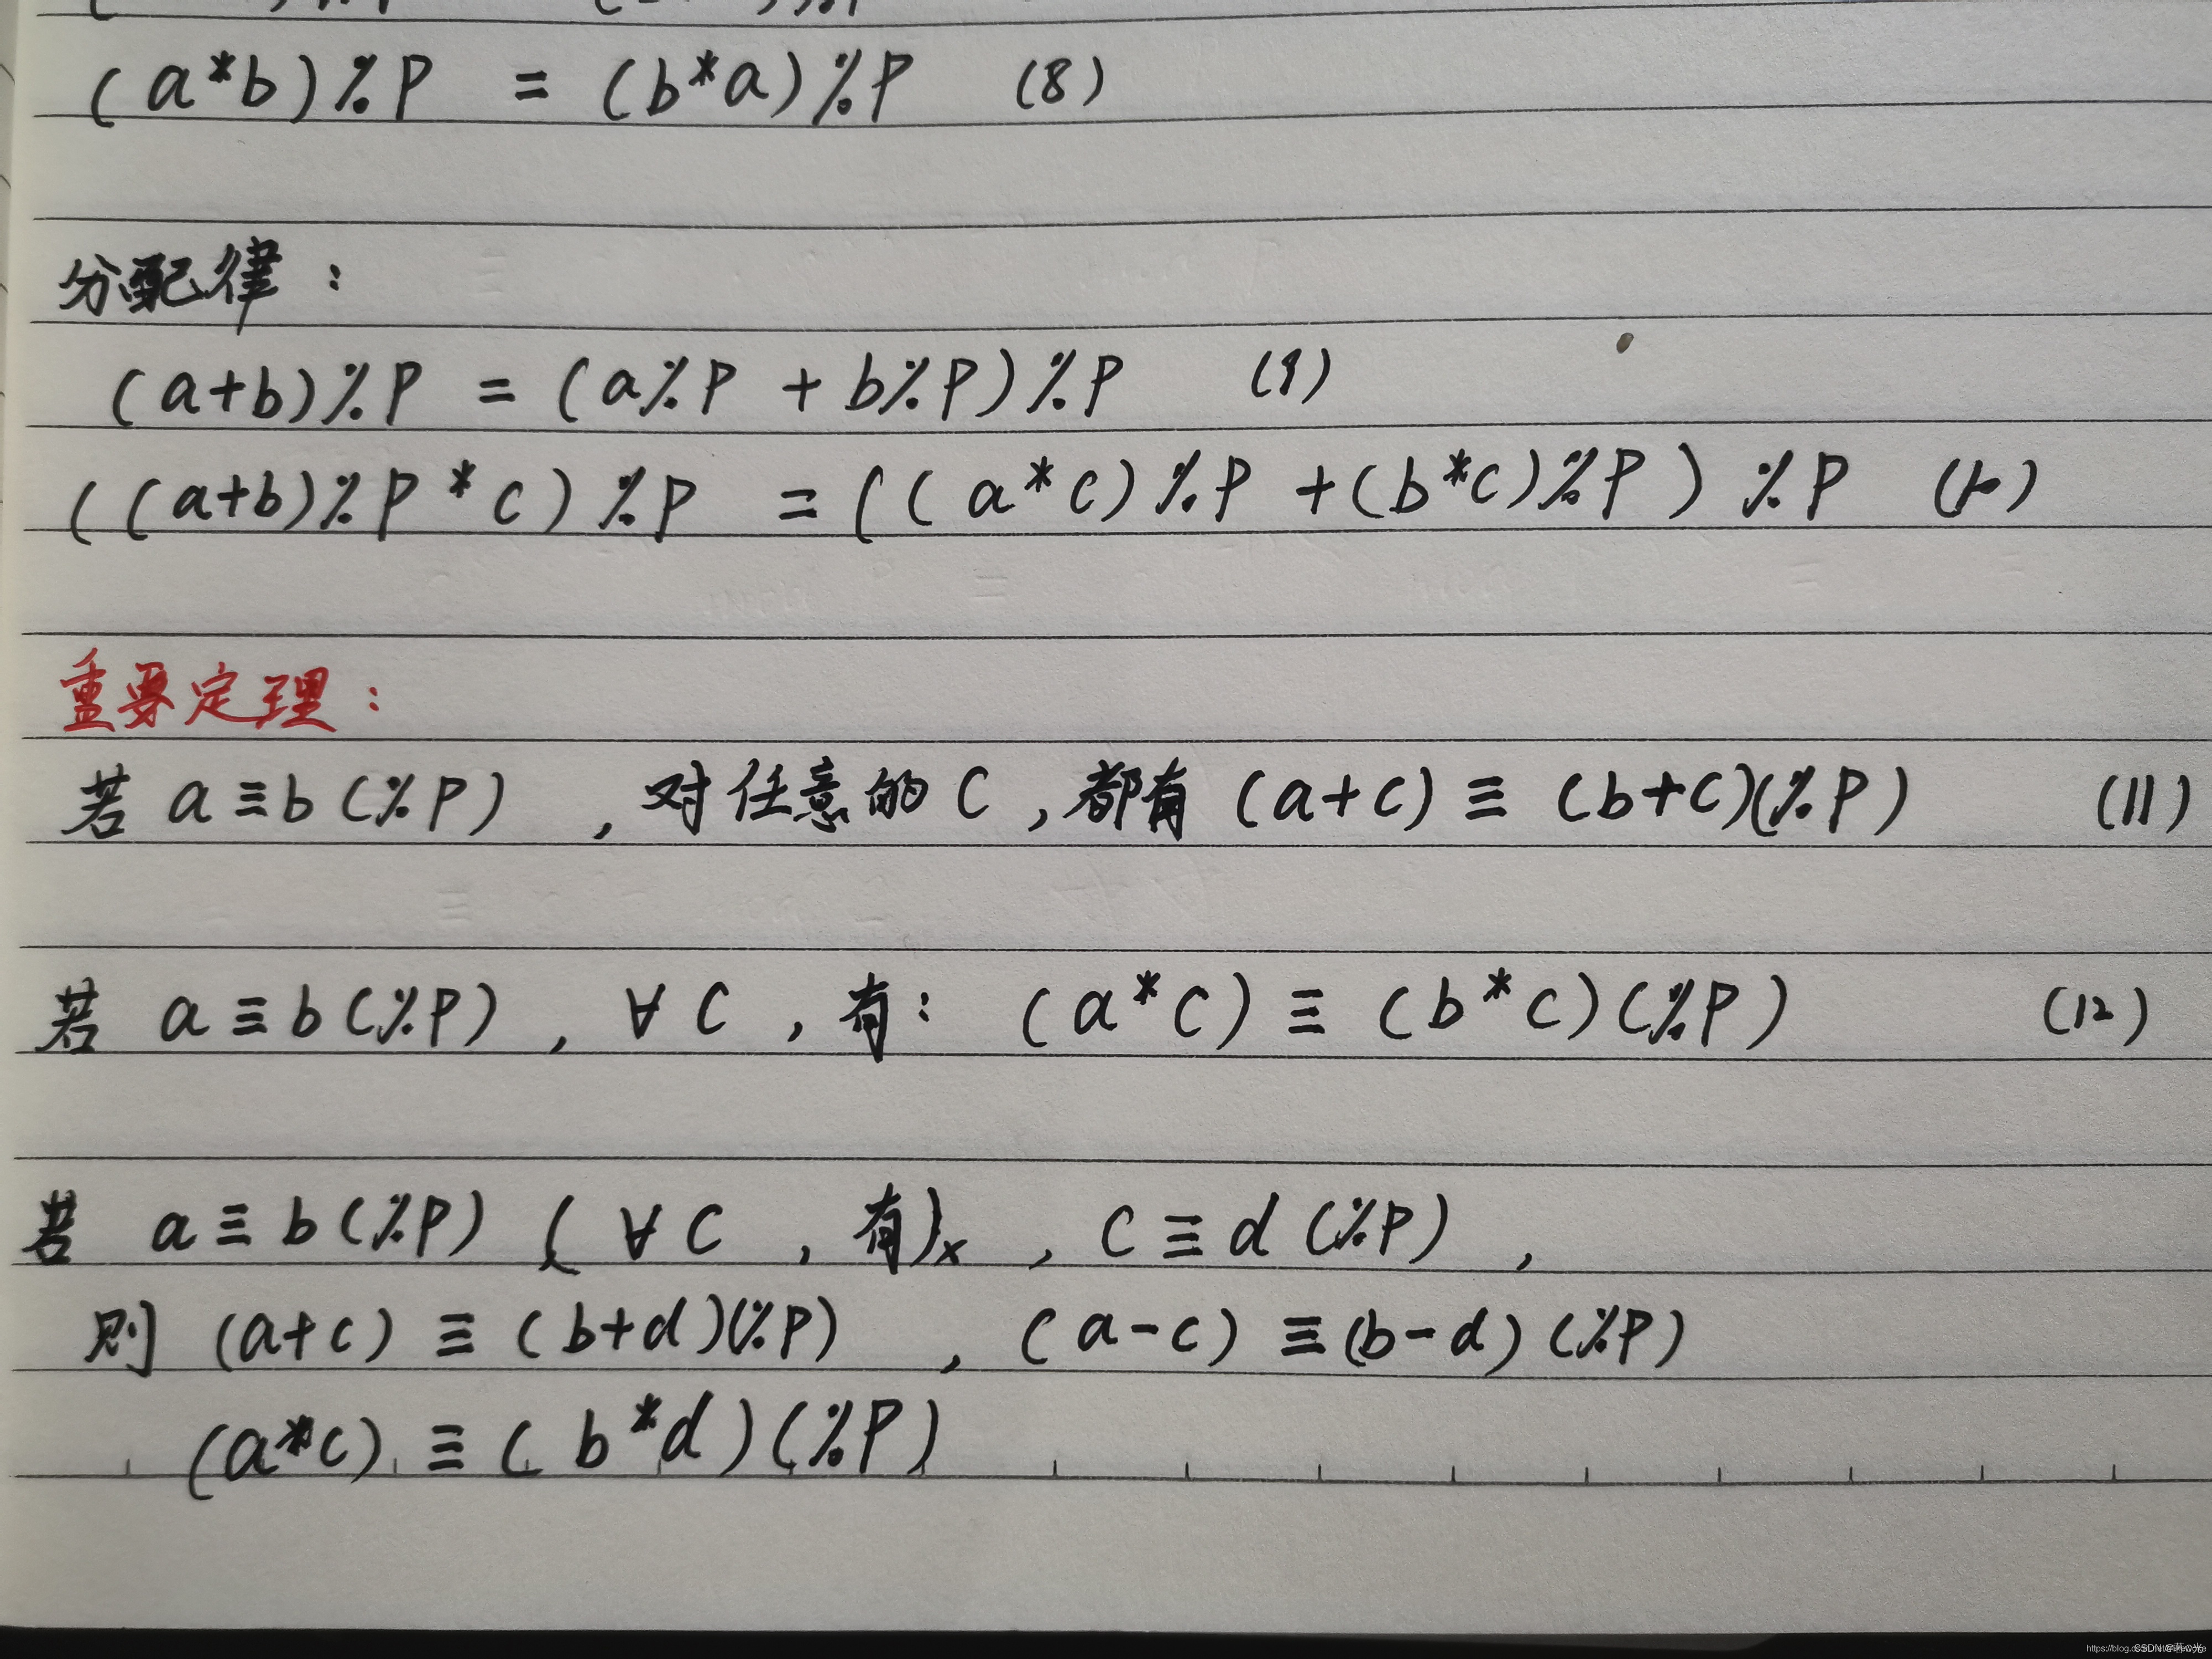 (a*b)%P = (b*a)%P (8)
分配律：
(a+b)%P = (a%P + b%P)%P (9)
((a+b)%P*c)%P = ((a*c)%P+(b*c)%P)%P (10)
重要定理：
若 a≡b(%P) ，对任意的c，都有 (a+c)≡(b+c)(%P) (11)
若 a≡b(%P) ，∀c ，有：(a*c)≡(b*c)(%P) (12)
若 a≡b(%P) (∀c ，有)x ，c≡d(%P) ，
则 (a+c)≡(b+d)(%P) ，(a-c)≡(b-d)(%P)
(a*c)≡(b*d)(%P)